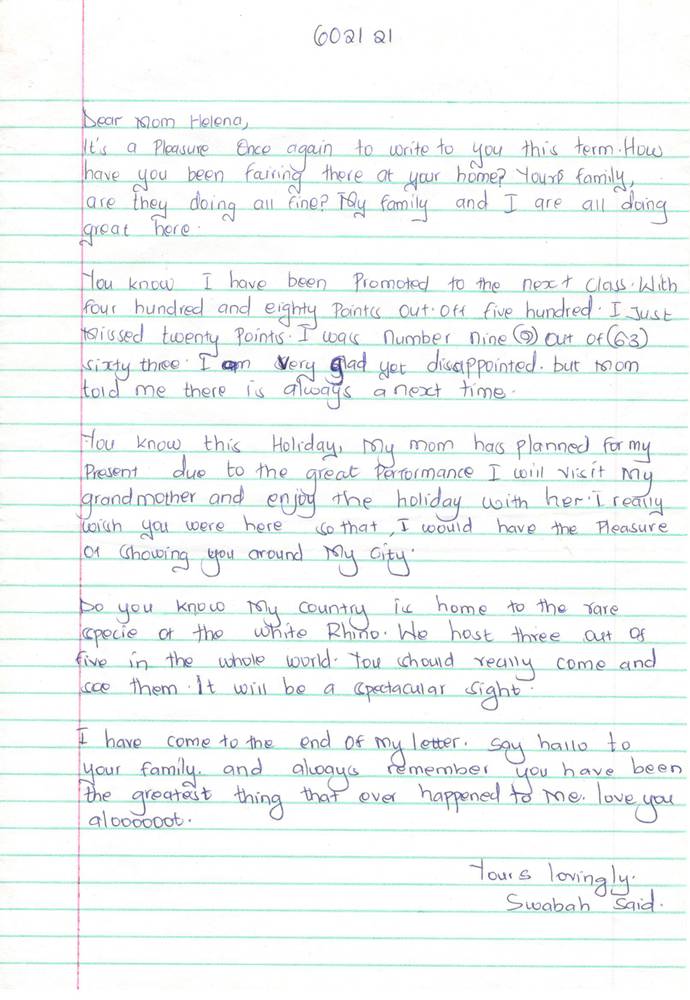 602121
Dear Mom Helena,
It's a Pleasure Once again to write to you this term. How
have you been fairing there at your home? Yours family,
are they doing all fine? My family and I are all doing
great here.
You know I have been Promoted to the next class. With
four hundred and eighty Points out. off five hundred. I Just
Missed twenty Points. I was number nine (9) out of (63)
sixty three. I am very glad yet disappointed. but Mom
told me there is always a next time.
You know this Holiday, My mom has planned for my
Present due to the great Performance I will visit My
grandmother and enjoy the holiday with her. I really
wish you were here so that, I would have the Pleasure
of showing you around My City.
Do you know My country is home to the rare
specie of the white Rhino. We host three out of
five in the whole world. You should really come and
see them. It will be a spectacular sight.
I have come to the end of my letter. say hallo to
your family. and always remember you have been
the greatest thing that ever happened to me. love you
alooooooot.
Yours lovingly.
Swabah Said.